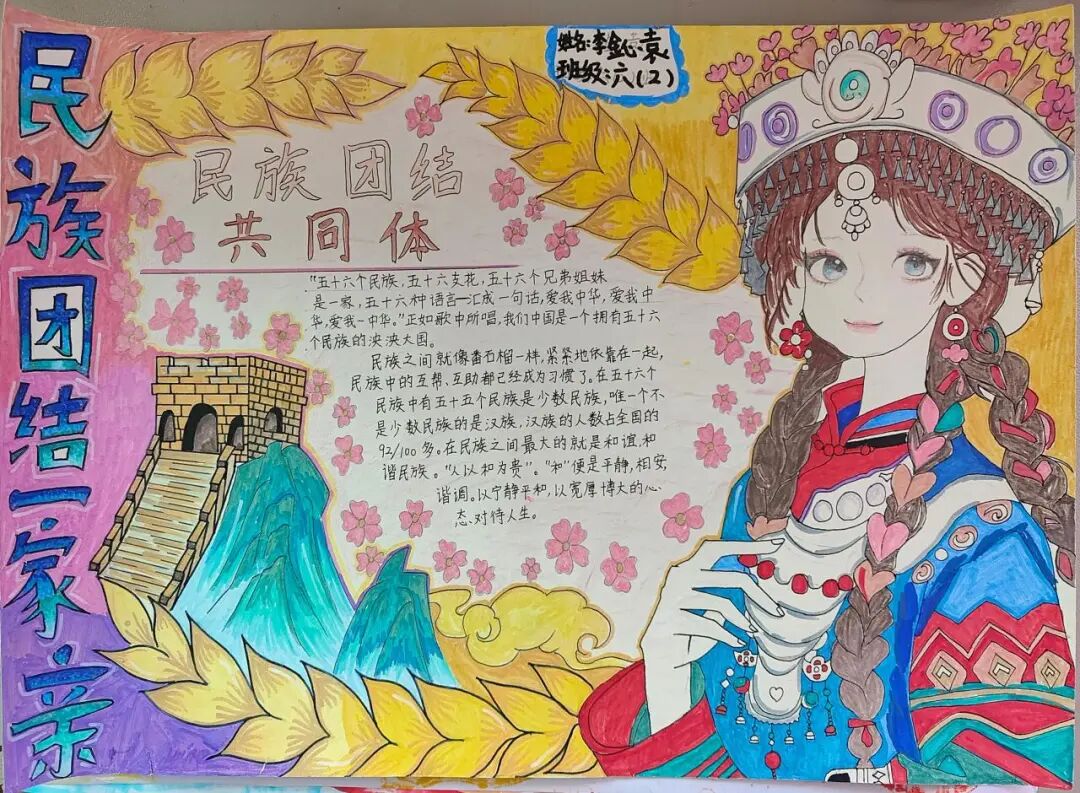 民族团结一家亲
姓名:李鈊袁
班级:六(2)
民族团结
共同体
"五十六个民族,五十六支花,五十六个兄弟姐妹
是一家,五十六种语言汇成一句话,爱我中华,爱我中
华,爱我一中华。"正如歌中所唱,我们中国是一个拥有五十六
个民族的泱泱大国。
民族之间就像番石榴一样,紧紧地依靠在一起,
民族中的互帮,互助都已经成为习惯了。在五十六个
民族中有五十五个民族是少数民族,唯一个不
是少数民族的是汉族,汉族的人数占全国的
92/100多。在民族之间最大的就是和谊,和
谐民族。"人以和为贵"。"和"便是平静,相安,
谐调。以宁静平和,以宽厚博大的心
态对待人生。